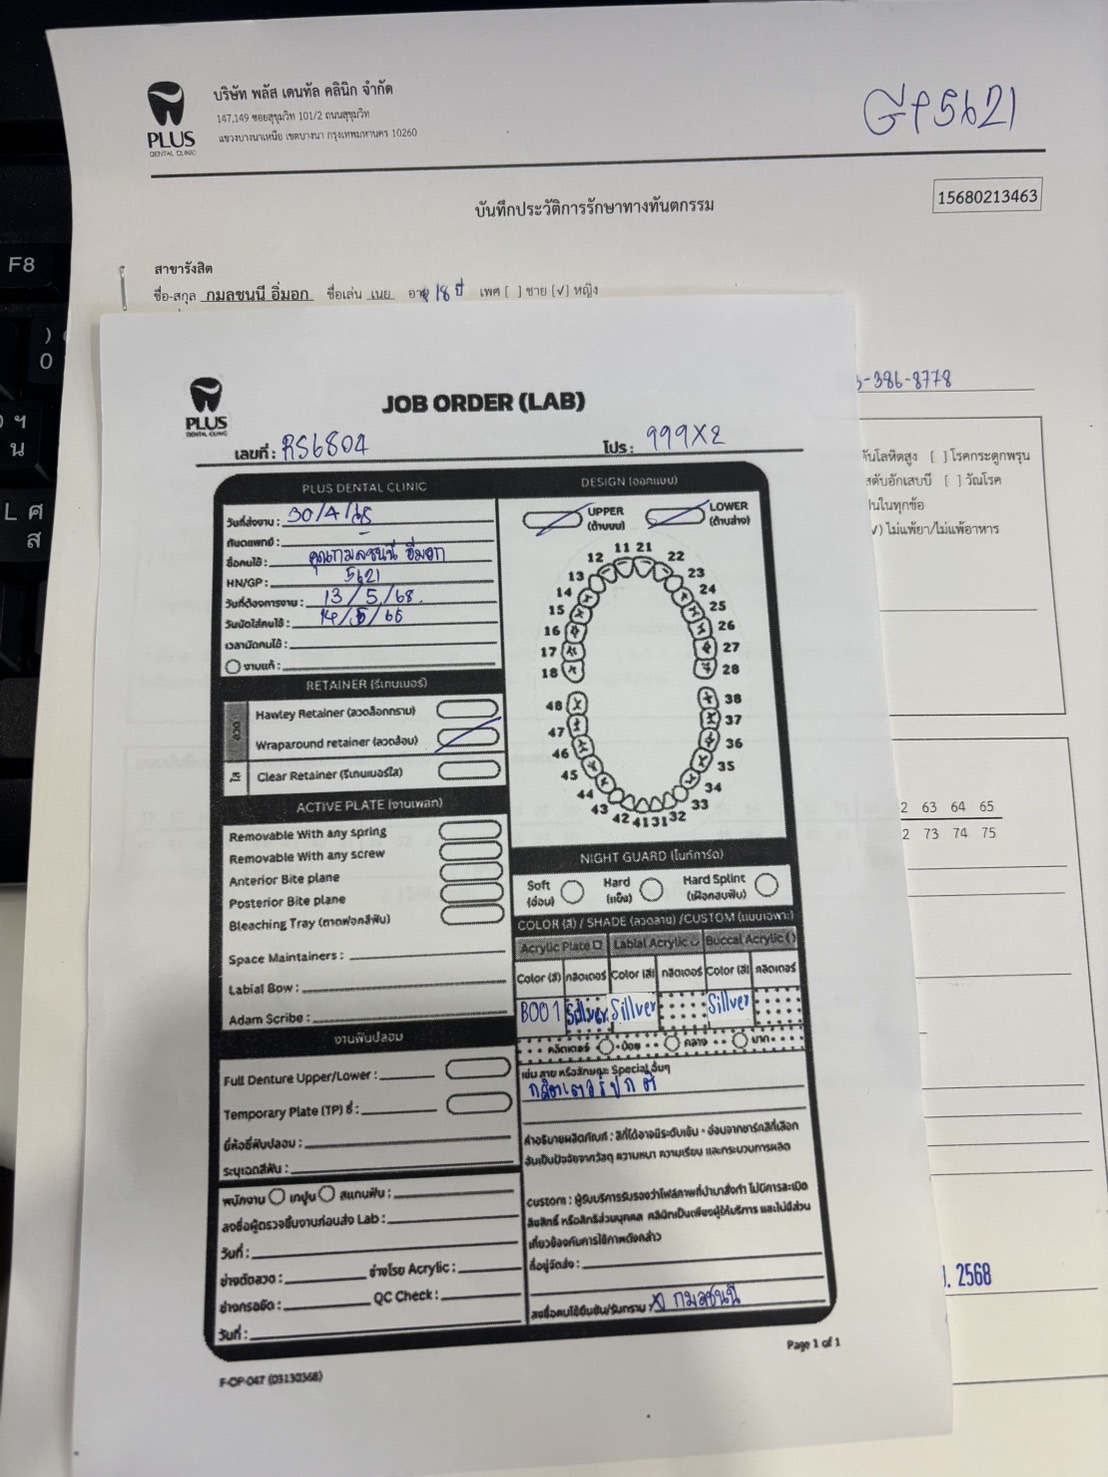 บริษัท พลัส เดนทัล คลินิก จำกัด
147,149 ซอยสุขุมวิท 101/2 ถนนสุขุมวิท
แขวงบางนาเหนือ เขตบางนา กรุงเทพมหานคร 10260
PLUS
DENTAL CLINIC
GP5621
บันทึกประวัติการรักษาทางทันตกรรม
15680213463
สาขารังสิต
ชื่อ-สกุล กมลชนนี อิ่มอก ชื่อเล่น เนย อายุ 18 ปี เพศ [ ] ชาย [√] หญิง
-386-8778
ันโลหิตสูง [ ] โรคกระดูกพรุน
ตับอักเสบบี [ ] วัณโรค
ในทุกข้อ
√) ไม่แพ้ยา/ไม่แพ้อาหาร
2 63 64 65
2 73 74 75
. 2568
F8
PLUS
DENTAL CLINIC
JOB ORDER (LAB)
เลขที่ : RS6804 โปร : 999X2
PLUS DENTAL CLINIC
วันที่ส่งงาน : 30/4/68
ทันตแพทย์ : -
ชื่อคนไข้ : คุณกมลชนนี อิ่มอก
HN/GP : 5621
วันที่ต้องการงาน : 13/5/68.
วันนัดใส่คนไข้ : 14/5/68
เวลานัดคนไข้ :
งานแก้ :
RETAINER (รีเทนเนอร์)
ลวด
Hawley Retainer (ลวดล็อกกราม)
Wraparound retainer (ลวดล้อม)
ใส
Clear Retainer (รีเทนเนอร์ใส)
ACTIVE PLATE (งานเพลท)
Removable With any spring
Removable With any screw
Anterior Bite plane
Posterior Bite plane
Bleaching Tray (ถาดฟอกสีฟัน)
Space Maintainers :
Labial Bow :
Adam Scribe :
งานฟันปลอม
Full Denture Upper/Lower :
Temporary Plate (TP) ซี่ :
ยี่ห้อซี่ฟันปลอม :
ระบุเฉดสีฟัน :
พนักงาน เทปูน สแกนฟัน :
ลงชื่อผู้ตรวจชิ้นงานก่อนส่ง Lab :
วันที่ :
ช่างดัดลวด : ช่างโรย Acrylic :
ช่างกรอขัด : QC Check :
วันที่ :
DESIGN (ออกแบบ)
UPPER (ด้านบน)
LOWER (ด้านล่าง)
11 21
12 22
13 23
14 24
15 25
16 26
17 27
18 28
48 38
47 37
46 36
45 35
44 34
43 33
42 41 31 32
NIGHT GUARD (ไนท์การ์ด)
Soft (อ่อน)
Hard (แข็ง)
Hard Splint (เฝือกสบฟัน)
COLOR (สี) / SHADE (ลวดลาย) /CUSTOM (แบบเฉพาะ)
Acrylic Plate Labial Acrylic Buccal Acrylic
Color (สี) กลิตเตอร์ Color (สี) กลิตเตอร์ Color (สี) กลิตเตอร์
B001 Sillver Sillver Sillver
กลิตเตอร์ น้อย กลาง มาก
เช่น ลาย หรือลักษณะ Special อื่นๆ
กลิตเตอร์ปกติ
คำอธิบายผลิตภัณฑ์ : สีที่ได้อาจมีระดับเข้ม - อ่อนจากชาร์ทสีที่เลือก
อันเป็นปัจจัยจากวัสดุ ความหนา ความเรียบ และกระบวนการผลิต
Custom : ผู้รับบริการรับรองว่าไฟล์ภาพที่นำมาสั่งทำ ไม่มีการละเมิด
ลิขสิทธิ์ หรือสิทธิส่วนบุคคล คลินิกเป็นเพียงผู้ให้บริการ และไม่มีส่วน
เกี่ยวข้องกับการใช้ภาพดังกล่าว
ที่อยู่จัดส่ง :
ลงชื่อคนไข้ยืนยัน/รับทราบ : กมลชนนี
Page 1 of 1
F-OP-047 (03130368)